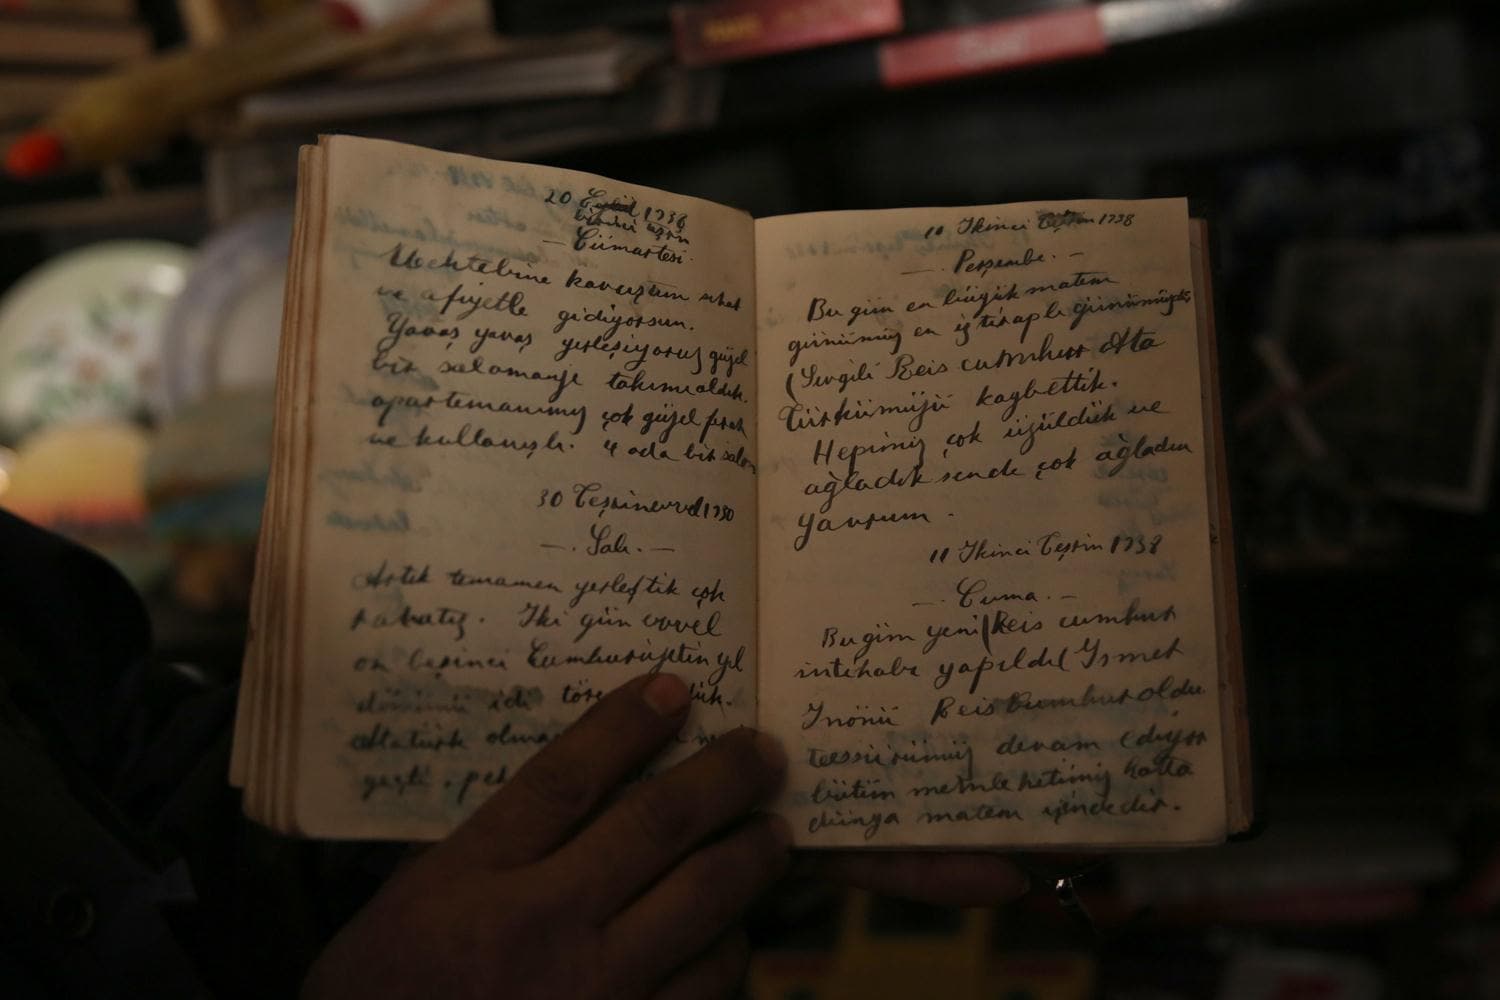 20 Eylül 1938
birinci teşrin
— Cümartesi.
Mektebine kavuştun sıhat
ve afiyetle gidiyorsun.
Yavaş yavaş yerleşiyoruz güzel
bir salamanje takımı aldık.
apartemanımız çok güzel ferah
ve kullanışlı. 4 oda bir salon
30 Teşrinevvel 1930
—. Salı. —
Artık temamen yerleştik çok
rahatız. İki gün evvel
on beşinci Cumhuriyetin yıl
dönümü idi
Atatürk
geçti.
10 İkinci Teşrin 1938
—. Perşembe. —
Bu gün en büyük matem
günümüz en iztiraplı günümüzdür
(Sevgili Reis cumhur Ata
Türkümüzü kaybettik.
Hepimiz çok üzüldük ve
ağladık sende çok ağladın
yavrum.
11 İkinci Teşrin 1938
—. Cuma. —
Bugün yeni (Reis cumhur
intihabı yapıldı( İsmet
İnönü Reis Cumhur oldu.
teessürümüz devam ediyor
bütün memleketimiz hatta
dünya matem içindedir.